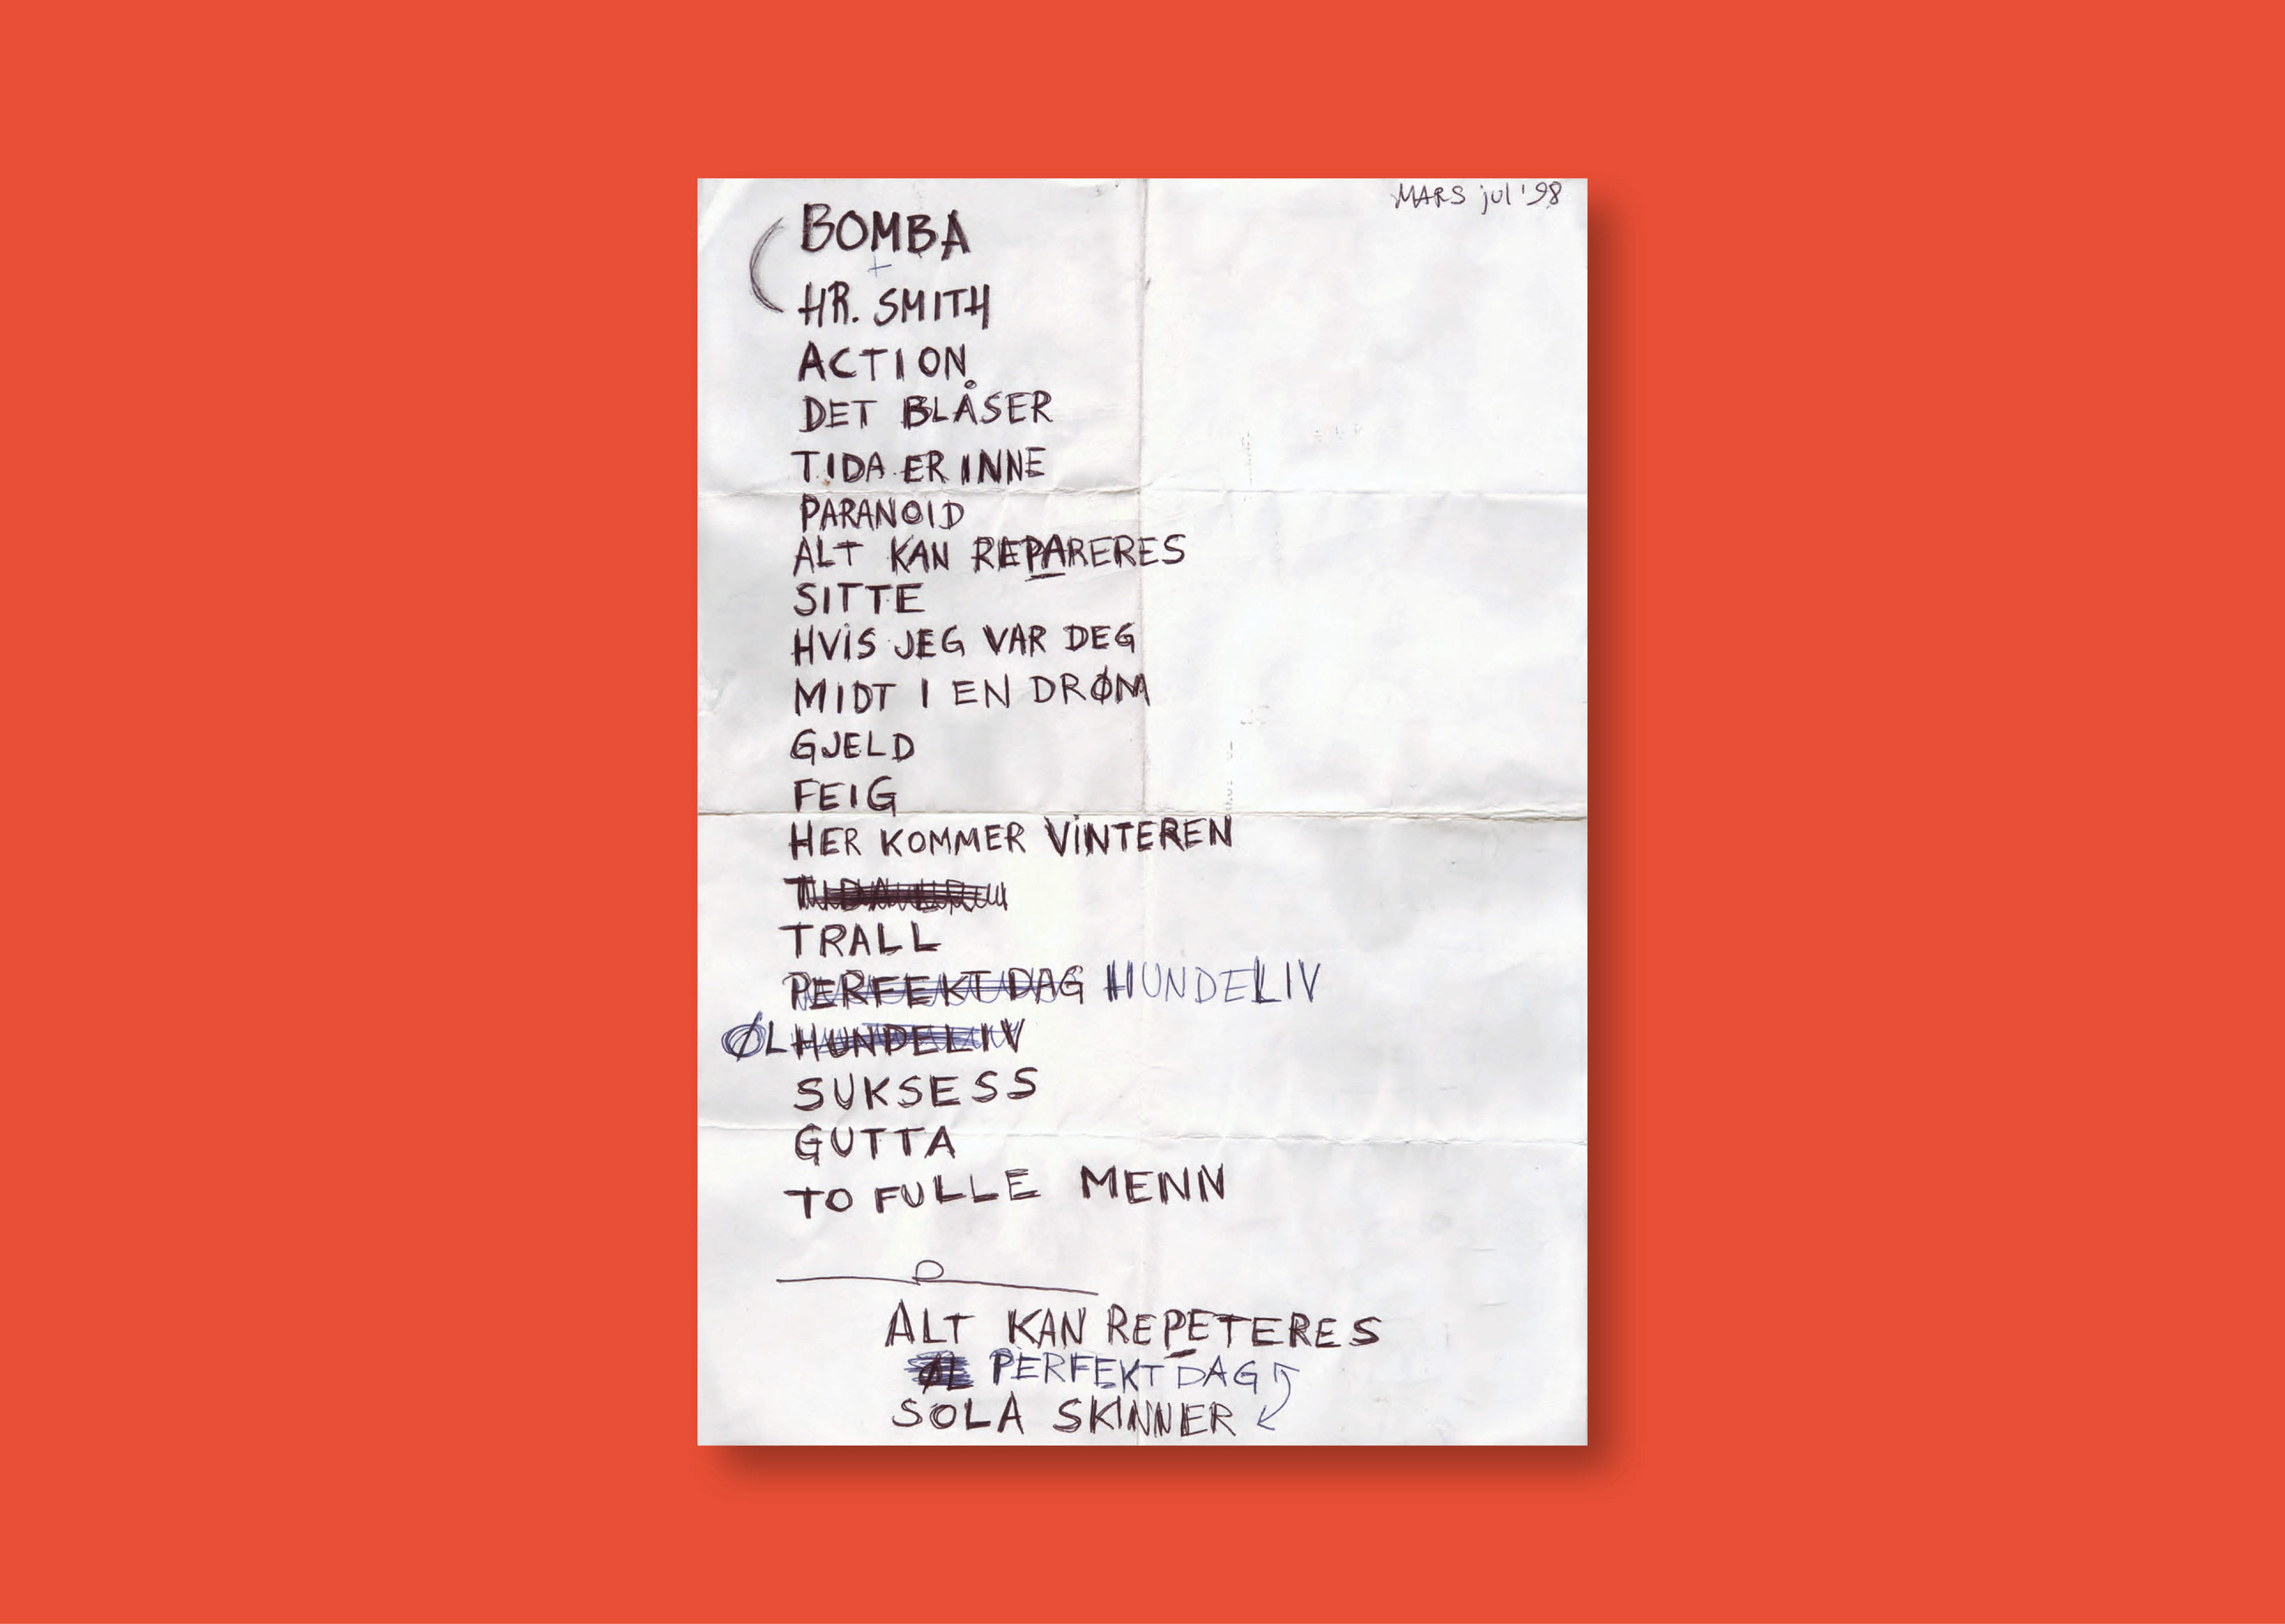 MARS jul '98
BOMBA
+
HR. SMITH
ACTION
DET BLÅSER
TIDA ER INNE
PARANOID
ALT KAN REPARERES
SITTE
HVIS JEG VAR DEG
MIDT I EN DRØM
GJELD
FEIG
HER KOMMER VINTEREN
TIDA ER
TRALL
PERFEKT DAG HUNDELIV
ØL HUNDELIV
SUKSESS
GUTTA
TO FULLE MENN
ALT KAN REPETERES
ØL PERFEKT DAG
SOLA SKINNER